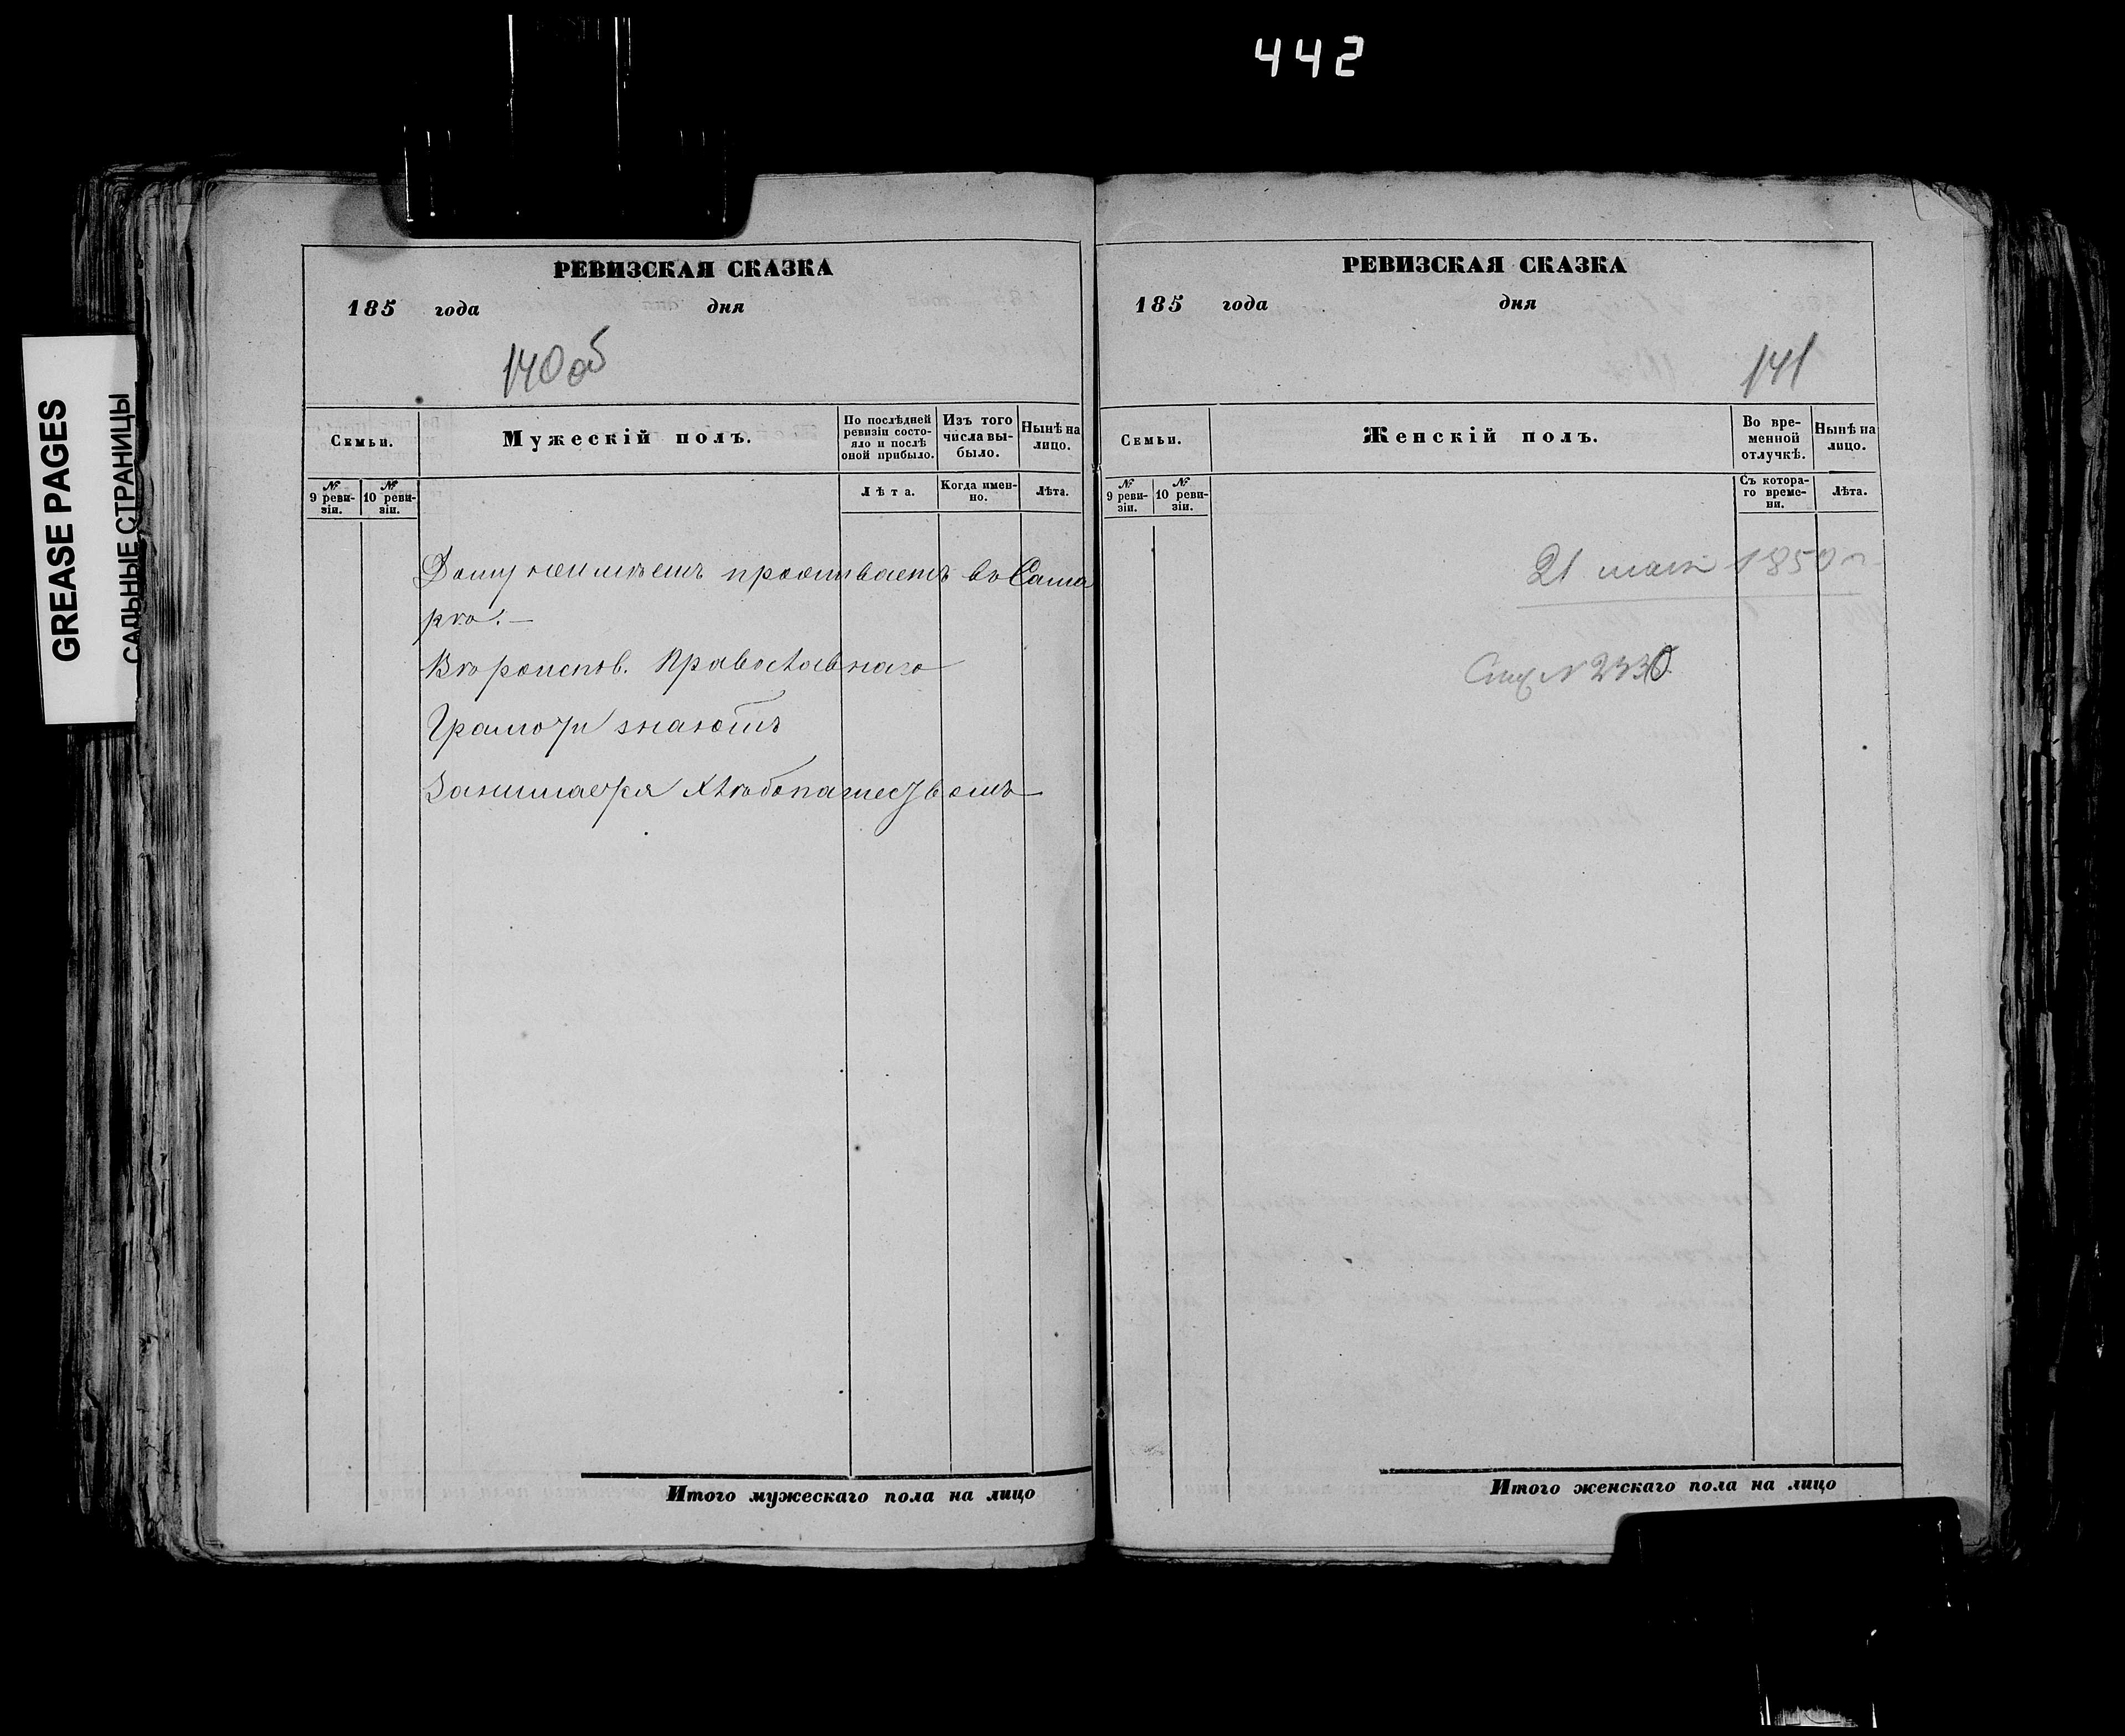 442
GREASE PAGES
САЛЬНЫЕ СТРАНИЦЫ
РЕВИЗСКАЯ СКАЗКА
185 года дня
140 об
Семьи.
Мужескій полъ.
По послѣдней ревизіи состояло и послѣ оной прибыло.
Изъ того числа выбыло.
Нынѣ на лицо.
№ 9 ревизіи.
№ 10 ревизіи.
Лѣта.
Когда именно.
Лѣта.
Дому неимѣетъ проживаетъ въ Сама
рѣ. —
Вѣроиспов. Православнаго
Грамоти знаютъ
Занимается хлѣбопашествомъ
Итого мужескаго пола на лицо
РЕВИЗСКАЯ СКАЗКА
185 года дня
141
Семьи.
Женскій полъ.
Во временной отлучкѣ.
Нынѣ на лицо.
№ 9 ревизіи.
№ 10 ревизіи.
Съ котораго времени.
Лѣта.
21 мая 1850 г
№ 2330
Итого женскаго пола на лицо